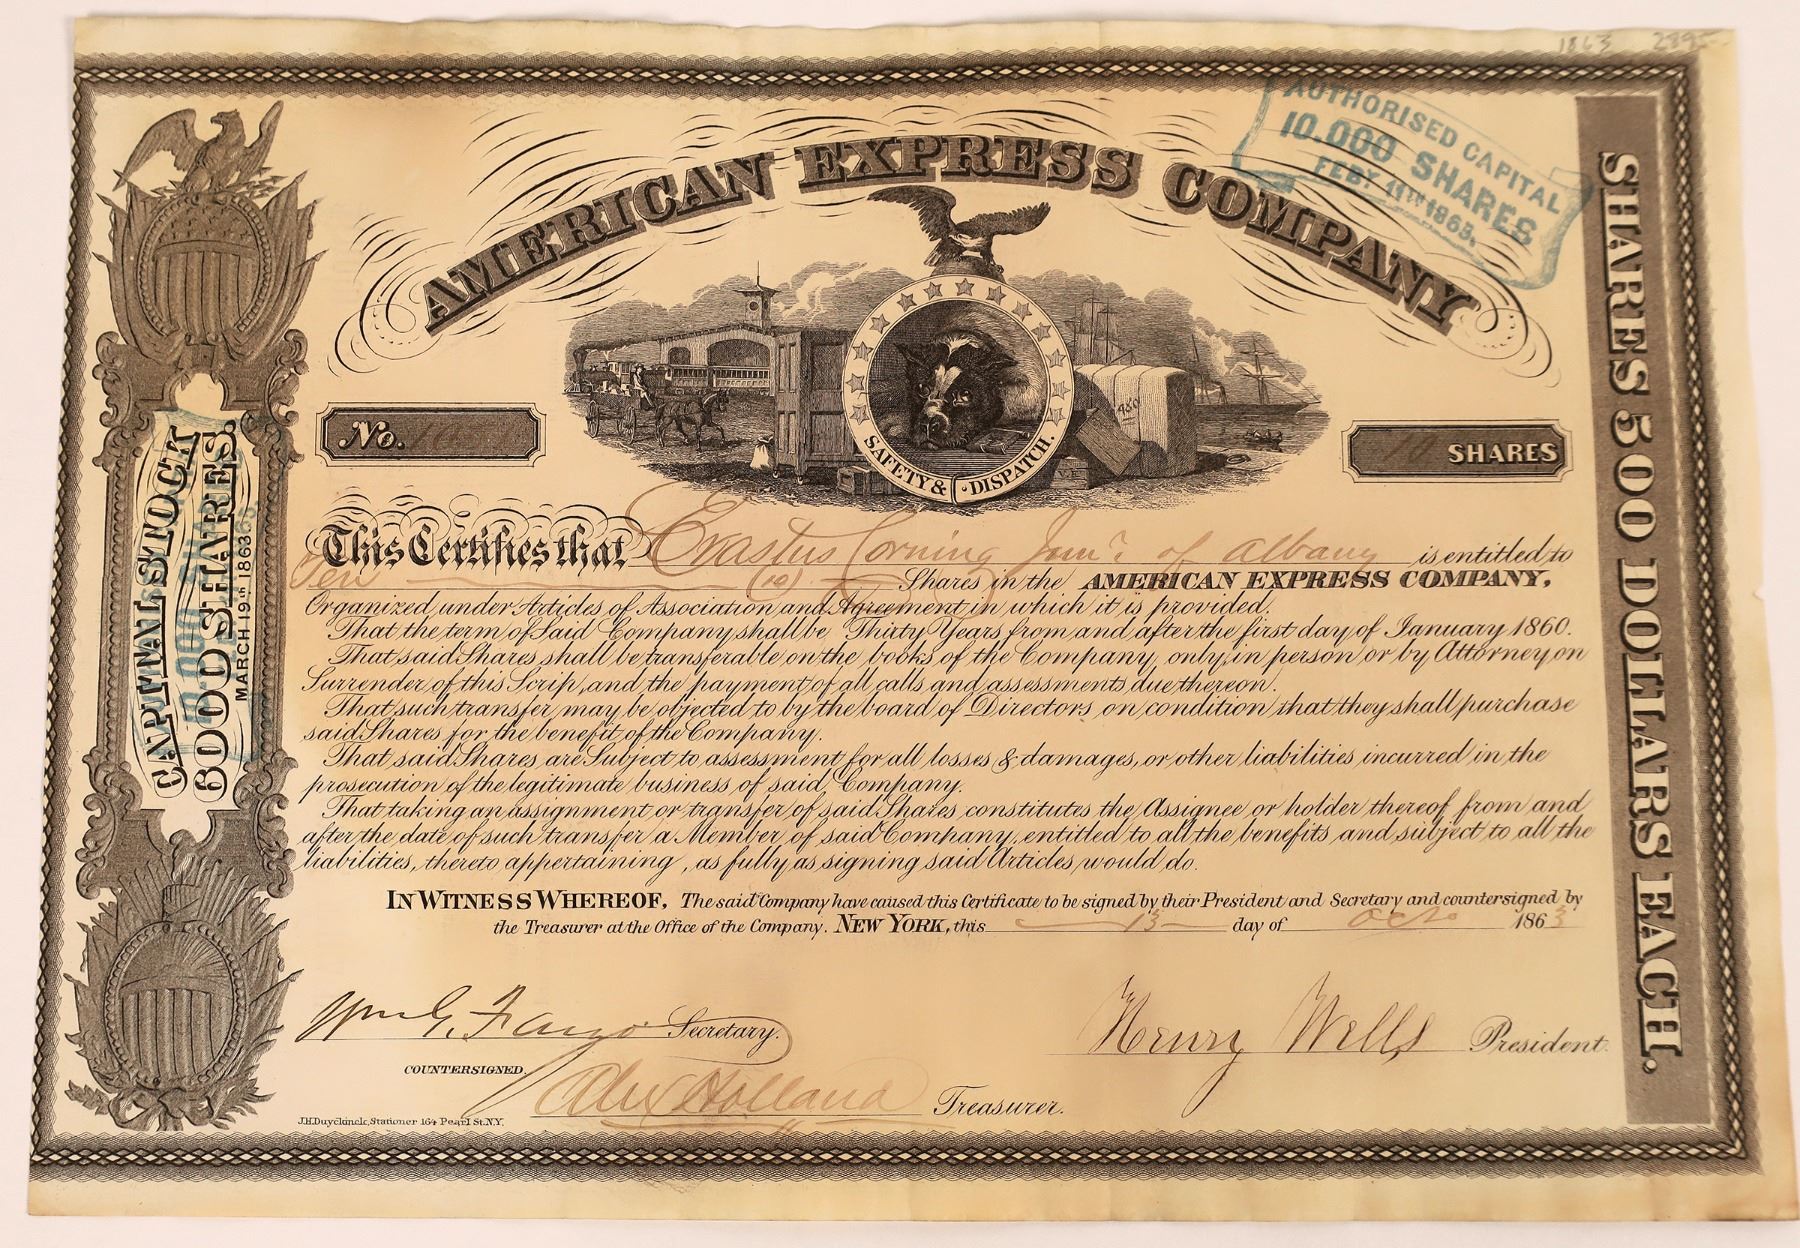 1863 2895
AUTHORISED CAPITAL
10.000 SHARES
FEBY. 11TH 1863.
AMERICAN EXPRESS COMPANY
SHARES 500 DOLLARS EACH.
CAPITAL STOCK
6000 SHARES.
10.000
MARCH 19th 1863
SAFETY & DISPATCH.
450
No.
10 SHARES
This Certifies that Erastus Corning Junr. of Albany is entitled to
Ten (10) Shares in the AMERICAN EXPRESS COMPANY,
Organized under Articles of Association and Agreement in which it is provided.
That the term of Said Company shall be Thirty Years from and after the first day of January 1860.
That said Shares shall be transferable on the books of the Company, only in person or by Attorney on
Surrender of this Scrip, and the payment of all calls and assessments due thereon.
That such transfer may be objected to by the board of Directors on condition that they shall purchase
said Shares for the benefit of the Company.
That said Shares are Subject to assessment for all losses & damages, or other liabilities incurred in the
prosecution of the legitimate business of said Company.
That taking an assignment or transfer of said Shares constitutes the Assignee or holder thereof from and
after the date of such transfer a Member of said Company, entitled to all the benefits and subject to all the
liabilities, thereto appertaining, as fully as signing said Articles would do.
IN WITNESS WHEREOF, The said Company have caused this Certificate to be signed by their President and Secretary and countersigned by
the Treasurer at the Office of the Company. NEW YORK, this 13 day of Octo 1863
Wm G. Fargo Secretary.
Henry Wells President.
COUNTERSIGNED.
Alex Holland Treasurer.
J.H. Duyckinck, Stationer 164 Pearl St. N.Y.